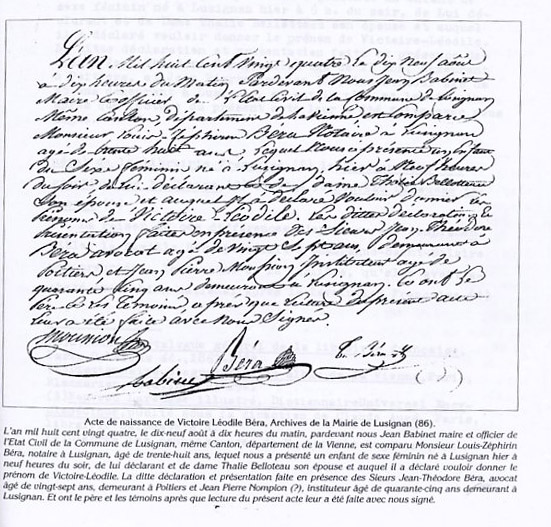 L'an mil huit cent vingt quatre le dix neuf août
à dix heures du matin Pardevant nous Jean Babinet
Maire & officier de l'Etat Civil de la Commune de Lusignan
Même Canton, département de la Vienne, est comparu
Monsieur Louis-Zéphirin Béra Notaire à Lusignan
agé de trente huit ans, lequel nous a présenté un Enfant
du Sexe féminin né à Lusignan, hier à neuf heures
du soir, de lui déclarant & de dame Thalie Belloteau
Son épouse et auquel il a déclaré vouloir donner le
prénom de Victoire Léodile. Les dittes déclaration &
présentation faites en présence des Sieurs Jean Théodore
Béra avocat agé de vingt sept ans, demeurant à
Poitiers et Jean Pierre instituteur agé de
quarante cinq ans demeurant à Lusignan. Et ont le
Père & les témoins après que lecture du présent acte
leur a été faite avec nous Signé.
Babinet Béra
( )
Acte de naissance de Victoire Léodile Bèra, Archives de la Mairie de Lusignan (86).
L'an mil huit cent vingt quatre, le dix-neuf août à dix heures du matin, pardevant nous Jean Babinet maire et officier de
l'Etat Civil de la Commune de Lusignan, même Canton, département de la Vienne, est comparu Monsieur Louis-Zéphirin
Bèra, notaire à Lusignan, âgé de trente-huit ans, lequel nous a présenté un enfant de sexe féminin né à Lusignan hier à
neuf heures du soir, de lui déclarant et de dame Thalie Belloteau son épouse et auquel il a déclaré vouloir donner le
prénom de Victoire-Léodile. La ditte déclaration et présentation faite en présence des Sieurs Jean-Thèodore Bèra, avocat
âgé de vingt-sept ans, demeurant à Poitiers et Jean Pierre Nompion (?), instituteur âgé de quarante-cinq ans demeurant à
Lusignan. Et ont le père et les témoins après que lecture du présent acte leur a été faite avec nous signé.